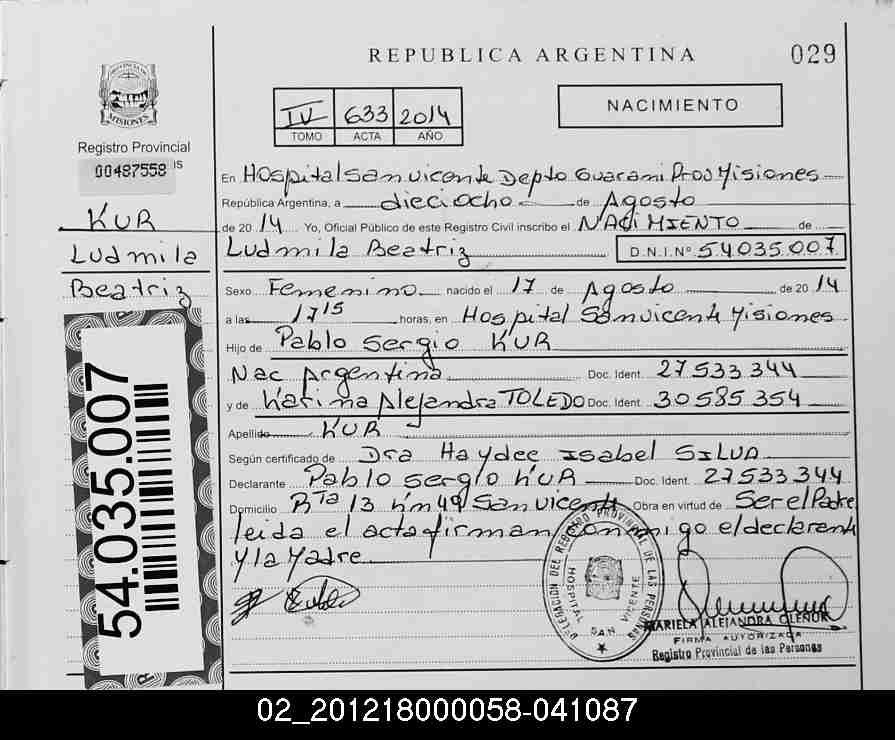 REPUBLICA ARGENTINA
029
PROVINCIA DE MISIONES
Registro Provincial
00487558
IV 633 2014
TOMO ACTA AÑO
NACIMIENTO
KUR
Ludmila
Beatriz
54.035.007
En Hospital San vicente Depto Guarani Prov Misiones
República Argentina, a dieciocho de Agosto
de 2014 Yo, Oficial Público de este Registro Civil inscribo el NACIMIENTO de
Ludmila Beatriz D.N.I.Nº 54035.007
Sexo Femenino nacido el 17 de Agosto de 2014
a las 1715 horas, en Hospital San vicente Misiones
Hijo de Pablo Sergio KUR
Nac Argentina Doc. Ident. 27533344
y de Karina Alejandra TOLEDO Doc. Ident. 30585354
Apellido KUR
Según certificado de Dra Haydee Isabel SILVA
Declarante Pablo Sergio KUR Doc. Ident. 27533344
Domicilio Rta 13 Km 49 San vicente Obra en virtud de Ser el Padre
leida el acta firman conmigo el declarante
y la Madre
DELEGACION DEL REGISTRO PROVINCIAL DE LAS PERSONAS
HOSPITAL SAN VICENTE
MARIELA ALEJANDRA OLENUR
FIRMA AUTORIZADA
Registro Provincial de las Personas
02_201218000058-041087